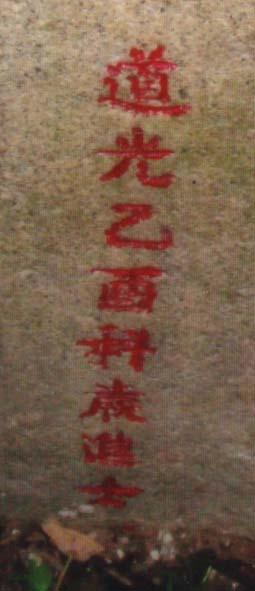 道光乙酉科歲進士